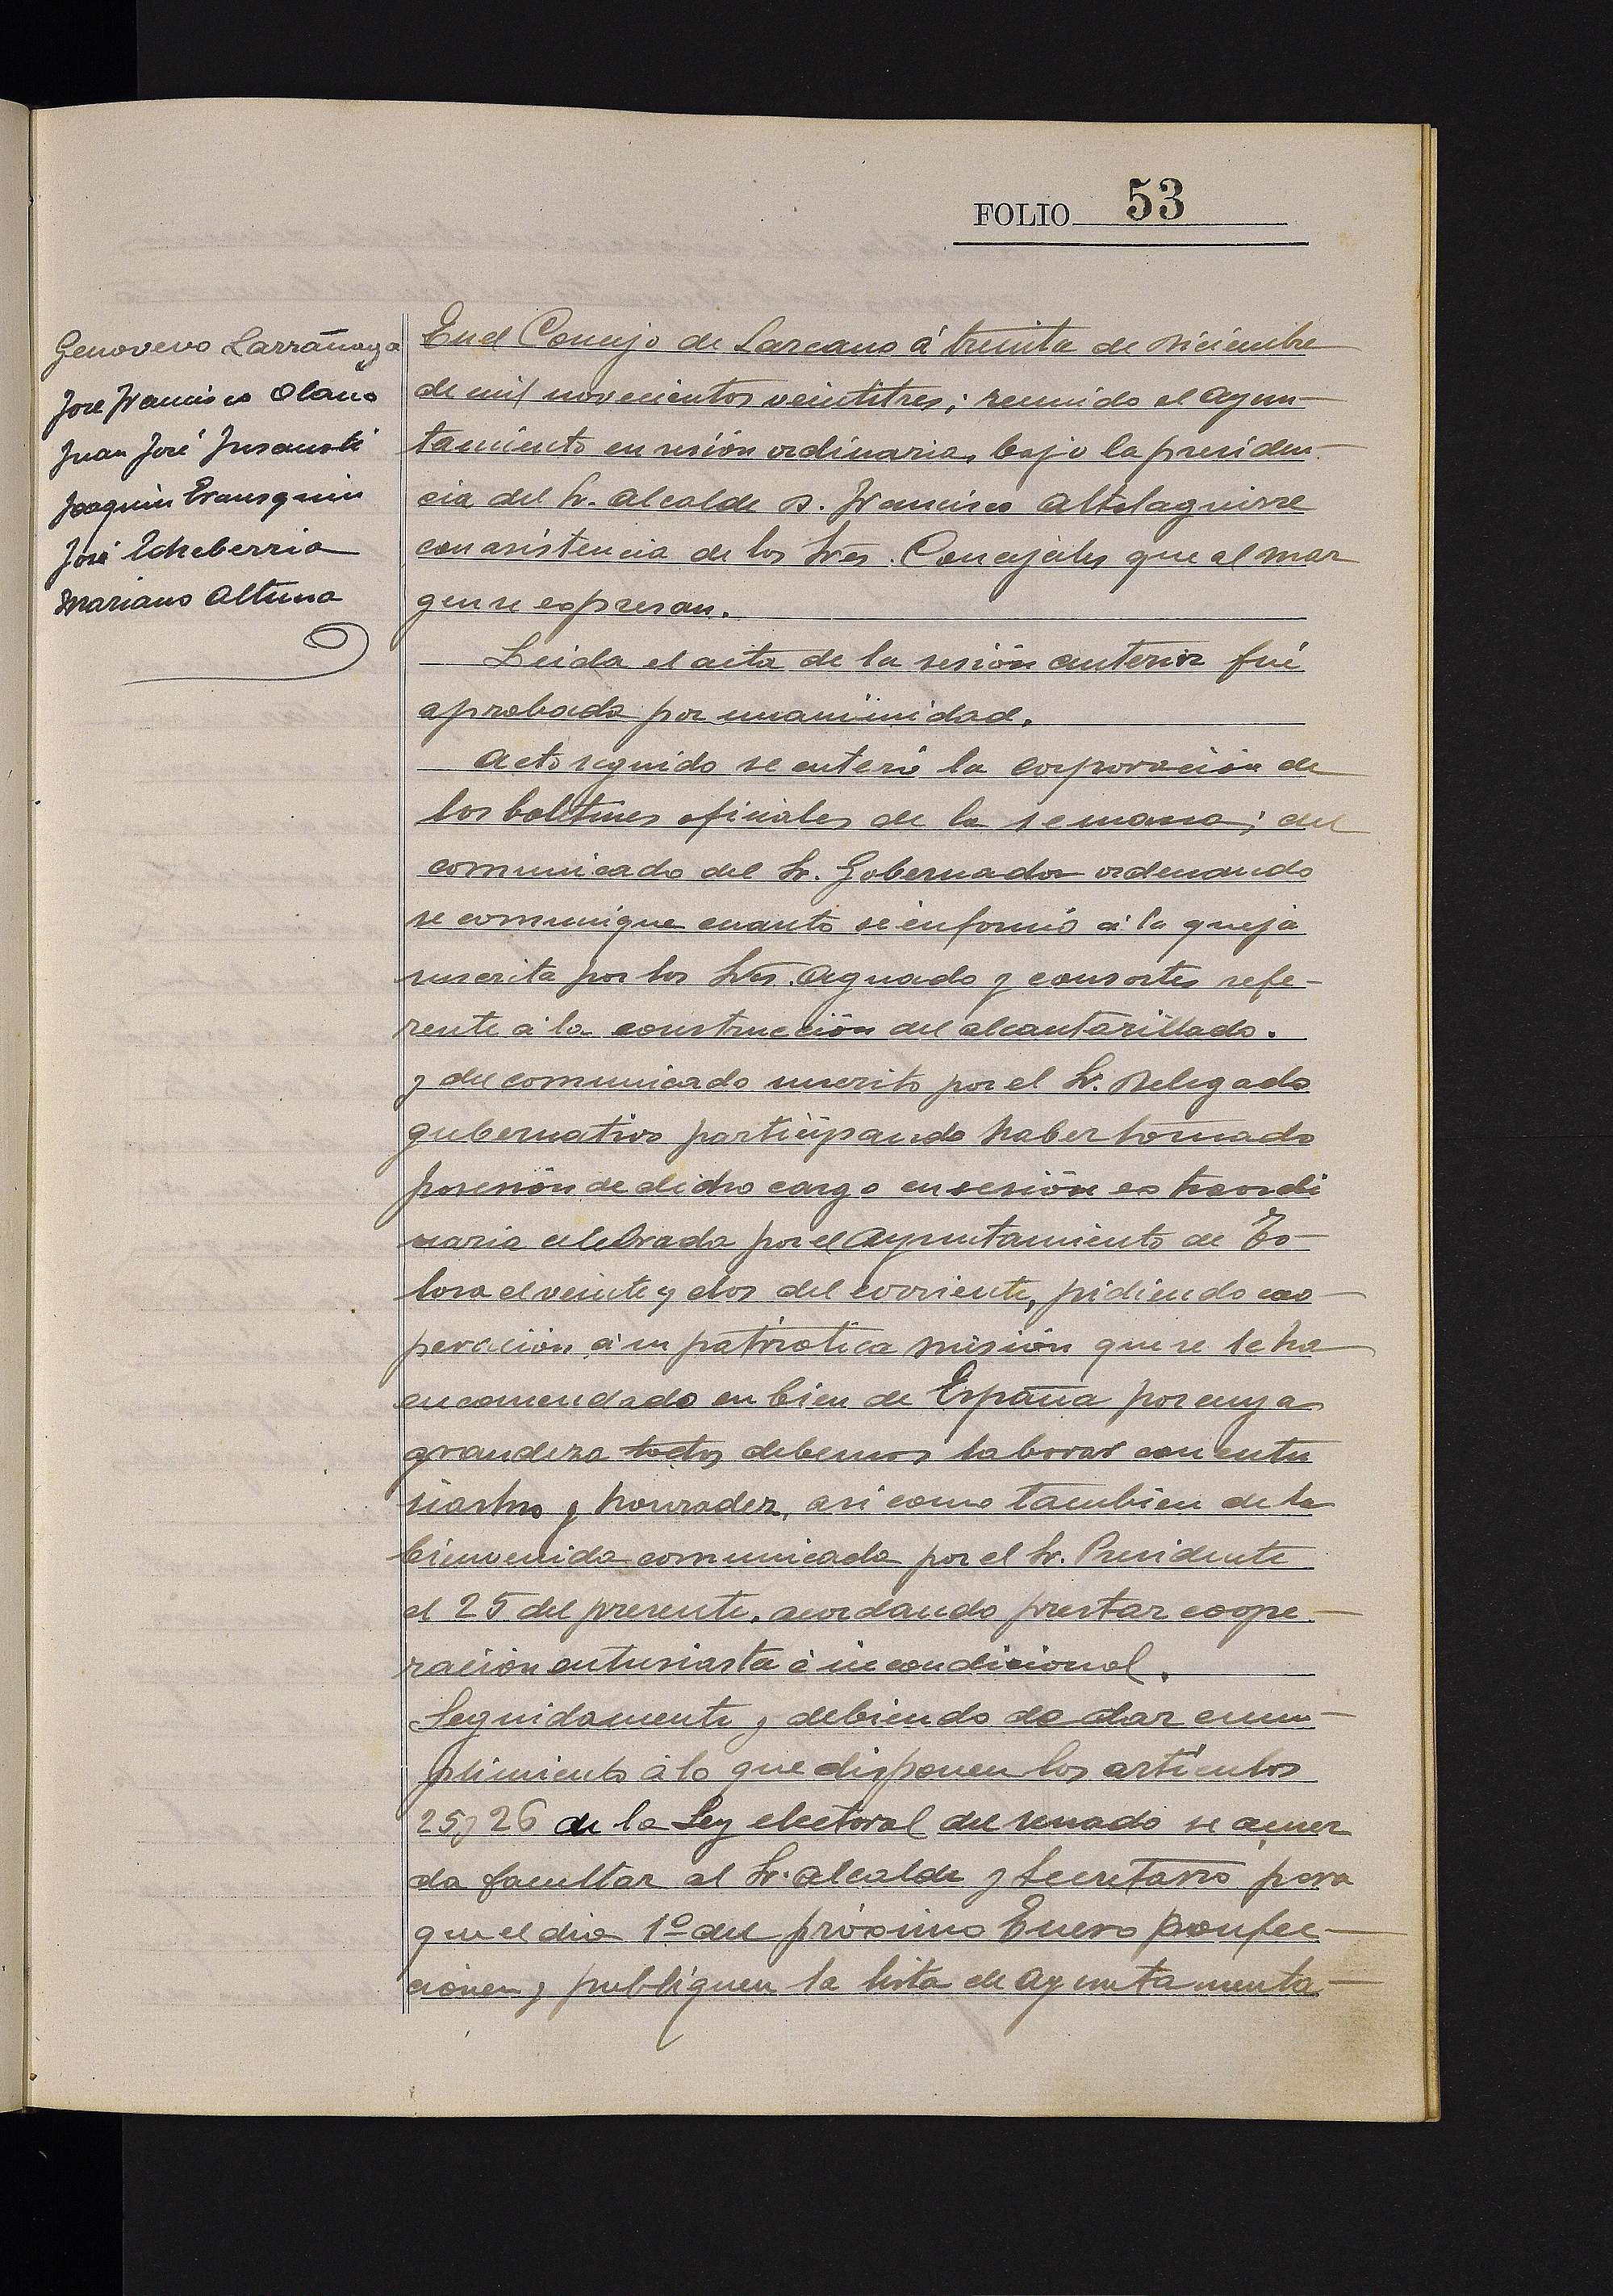 FOLIO 53
Genovevo Larrañaga
Jose Francisco Olano
Juan José Insausti
Joaquin Erausquin
José Echeberria
Mariano Altuna
En el Concejo de Lazcano á treinta de Diciembre
de mil novecientos veintitres; reunido el Ayun-
tamiento en sesión ordinaria, bajo la presiden-
cia del Sr. Alcalde D. Francisco Altolaguirre
con asistencia de los Sres. Concejales que al mar
gen se expresan.
Leida el acta de la sesión anterior fué
aprobada por unanimidad.
Acto seguido se enteró la corporación de
los boletines oficiales de la semana; del
comunicado del Sr. Gobernador ordenando
se comunique cuanto se informó á la queja
suscrita por los Sres. Aguado y consortes refe-
rente á la construcción del alcantarillado.
y del comunicado suscrito por el Sr. Delegado
gubernativo participando haber tomado
posesión de dicho cargo en sesión extraordi
naria celebrada por el Ayuntamiento de To-
losa el veinte y dos del corriente, pidiendo coo-
peración á su patriotica misión que se le ha
encomendado en bien de España por cuya
grandeza todos debemos laborar con entu
siasmo y honradez, asi como tambien de la
bienvenida comunicada por el Sr. Presidente
el 25 del presente, acordando prestar coope-
ración entusiasta é incondicional.
Seguidamente y debiendo de dar cum-
plimiento á lo que disponen los artículos
25 y 26 de la Ley electoral del senado se acuer
da facultar al Sr. Alcalde y Secretario para
que el dia 1º del próximo Enero confec-
cionen y publiquen la lista de Ayuntamenta-